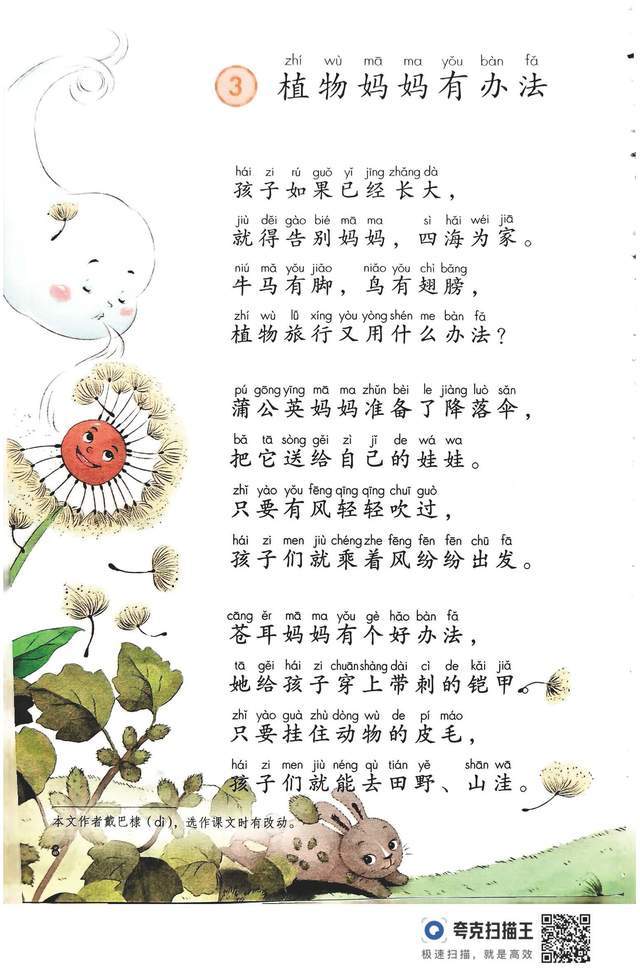 zhí wù mā ma yǒu bàn fǎ
3 植物妈妈有办法
hái zi rú guǒ yǐ jīng zhǎng dà
孩子如果已经长大，
jiù děi gào bié mā ma sì hǎi wéi jiā
就得告别妈妈，四海为家。
niú mǎ yǒu jiǎo niǎo yǒu chì bǎng
牛马有脚，鸟有翅膀，
zhí wù lǚ xíng yòu yòng shén me bàn fǎ
植物旅行又用什么办法？
pú gōng yīng mā ma zhǔn bèi le jiàng luò sǎn
蒲公英妈妈准备了降落伞，
bǎ tā sòng gěi zì jǐ de wá wa
把它送给自己的娃娃。
zhǐ yào yǒu fēng qīng qīng chuī guò
只要有风轻轻吹过，
hái zi men jiù chéng zhe fēng fēn fēn chū fā
孩子们就乘着风纷纷出发。
cāng ěr mā ma yǒu gè hǎo bàn fǎ
苍耳妈妈有个好办法，
tā gěi hái zi chuān shàng dài cì de kǎi jiǎ
她给孩子穿上带刺的铠甲。
zhǐ yào guà zhù dòng wù de pí máo
只要挂住动物的皮毛，
hái zi men jiù néng qù tián yě shān wā
孩子们就能去田野、山洼。
本文作者戴巴棣（dì），选作课文时有改动。
8
夸克扫描王
极速扫描，就是高效